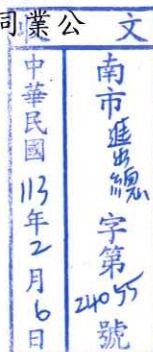 同業公
文
南市進出總字第24055號
中華民國113年2月6日